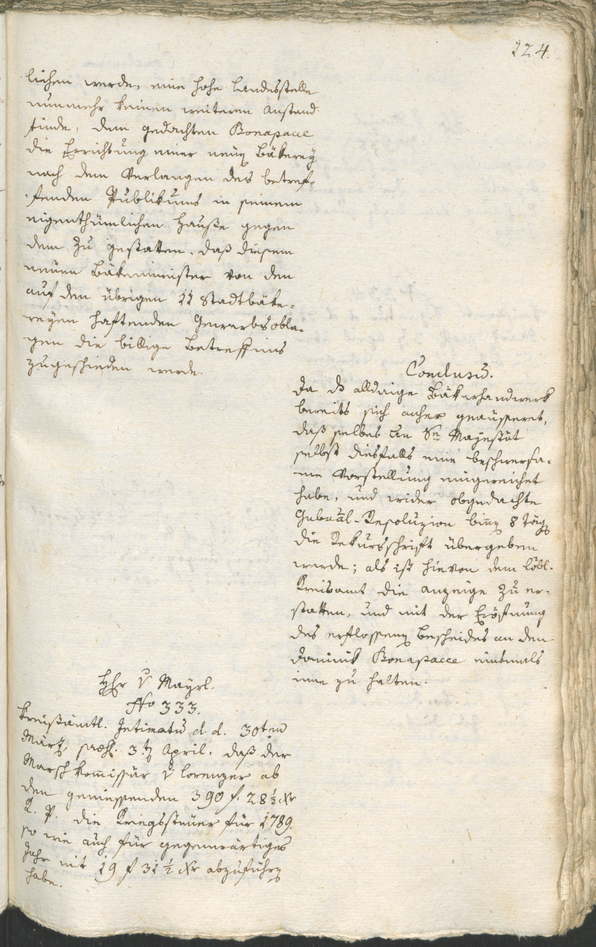 224.
lichen werde, eine hohe Landesstelle
nunmehr keinen weiteren Anstand
finde, dem gedachten Bonapace
die Errichtung einer neuen Bäkerey
nach dem Verlangen des betref-
fenden Publikums in seinem
eigenthümlichen Hauße gegen
dem zu gestatten, daß diesem
neuen Bäkenmeister von den
auf den übrigen 11 Stadtbäke-
reyen haftenden Gewerbsobla-
gen die billige Betreffniß
zugeschieden werde.
Conclusum.
Da das alldasige Bäkerhandwerk
bereits sich anher geäusseret,
daß selbes an Se Majestät
selbst diesfalls eine beschwersa-
me Vorstellung eingereichet
habe, und wider obgedachte
Gubernial-Resoluzion binnen 8 Tägen
die Rekursschrift übergeben
werde; als ist hievon dem Löbl.
Kreisamt die Anzeige zu er-
statten, und mit der Eröfnung
des erflossenen Bescheides an den
Dominik Bonapace einmals
inne zu halten.
Hr v Mayrl.
No 333.
Kreisämtl. Intimatum d d. 30ten
März, präs. 3ten April, daß der
Marsch Kommissär v Lorenzer ab
den geniessenden 390 f. 28½ Xr
die Kriegssteuer für 1789.
so wie auch für gegenwärtiges
Jahr mit 19 f 31½ Xr abzuführen
habe.